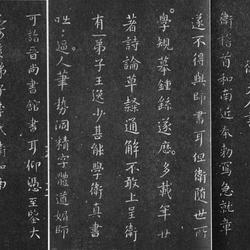 衛稽首和南近奉勅寫急就章
遂不得與師書耳但衛隨世所
學規摹鍾繇遂歷多載年廿
著詩論草隸通解不敢上呈衛
有一弟子王逸少甚能學衛真書
咄咄逼人筆勢洞精字體遒媚師
可詣晉尚書館書耳仰憑至鑒大